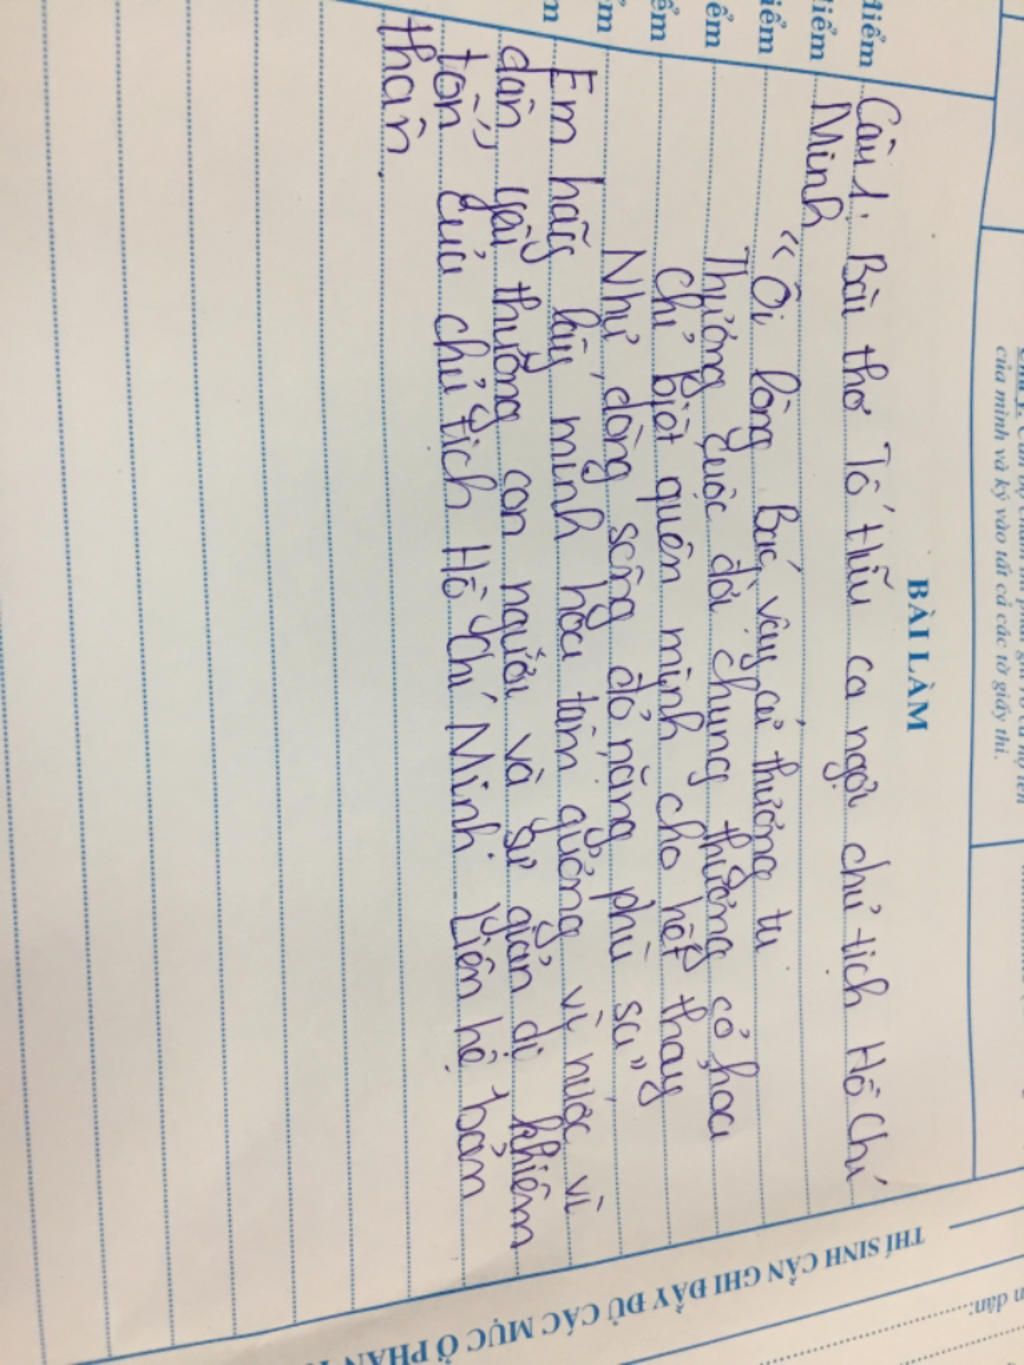 điểm
điểm
điểm
ểm
ểm
m
m
của mình và ký vào tất cả các tờ giấy thi.
BÀI LÀM
Câu 1. Bài thơ Tố Hữu ca ngợi chủ tịch Hồ Chí
Minh
"Ôi lòng Bác vậy cứ thương ta
Thương cuộc đời chung thương cỏ hoa
Chỉ biết quên mình cho hết thảy
Như dòng sông đỏ nặng phù sa"
Em hãy lấy minh họa tấm gương vì nước vì
dân, yêu thương con người và sự giản dị khiêm
tốn" của chủ tịch Hồ Chí Minh. Liên hệ bản
thân.
THÍ SINH CẦN GHI ĐẦY ĐỦ CÁC MỤC Ở PHẦN
dân: